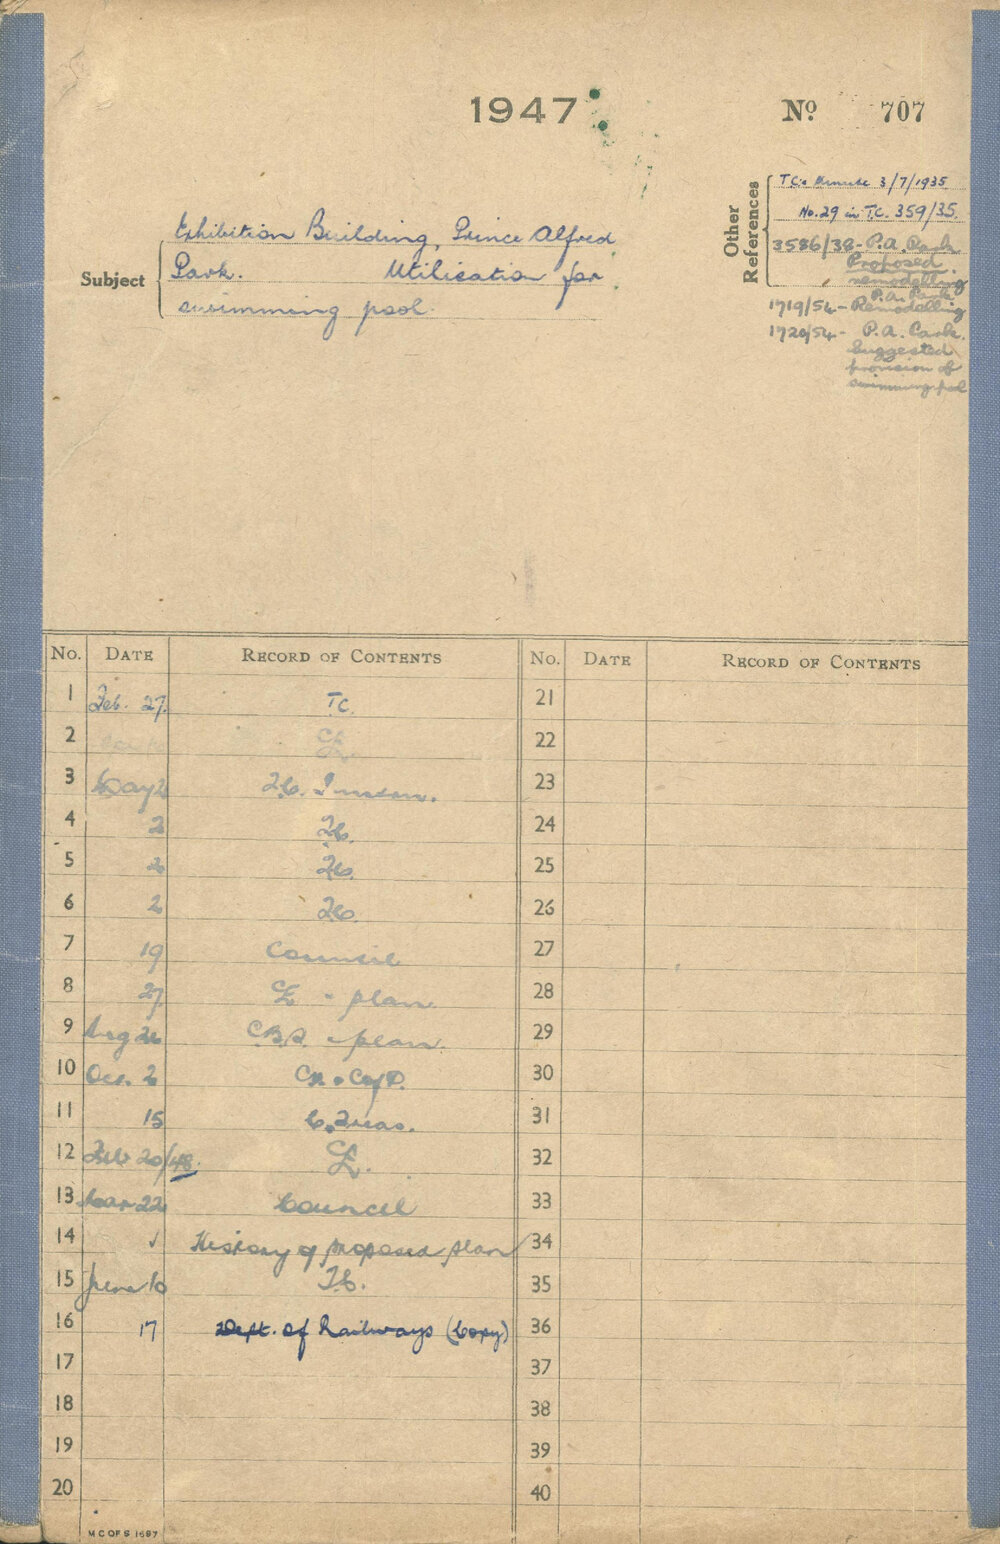 1947
Nº 707
Other References
T.C's Minute 3/7/1935
No. 29 in T.C. 359/35.
3586/38 - P.A. Park
Proposed
remodelling
P.A. Park
1719/54 - Remodelling
1720/54 - P.A. Park.
Suggested
provision of
swimming pool
Subject
Exhibition Building, Prince Alfred
Park. Utilisation for
swimming pool.
No. DATE RECORD OF CONTENTS
1 Feb. 27. T.C.
2
3 May 2
4 2
5 2
6 2
7 19 Council
8 27 - plan.
9 Aug 26 - plan.
10 Oct. 2
11 15
12 Feb 20/48.
13 Mar 22 Council
14 History of proposed plan
15 June 10
16 17 Dept. of Railways (Copy)
17
18
19
20
No. DATE RECORD OF CONTENTS
21
22
23
24
25
26
27
28
29
30
31
32
33
34
35
36
37
38
39
40
M C OF S 1687